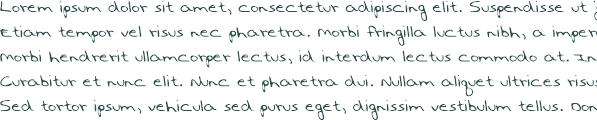 Lorem ipsum dolor sit amet, consectetur adipiscing elit. Suspendisse ut
Etiam tempor vel risus nec pharetra. Morbi fringilla luctus nibh, a imper
Morbi hendrerit ullamcorper lectus, id interdum lectus commodo at. In
Curabitur et nunc elit. Nunc et pharetra dui. Nullam aliquet ultrices risus
Sed tortor ipsum, vehicula sed purus eget, dignissim vestibulum tellus. Don